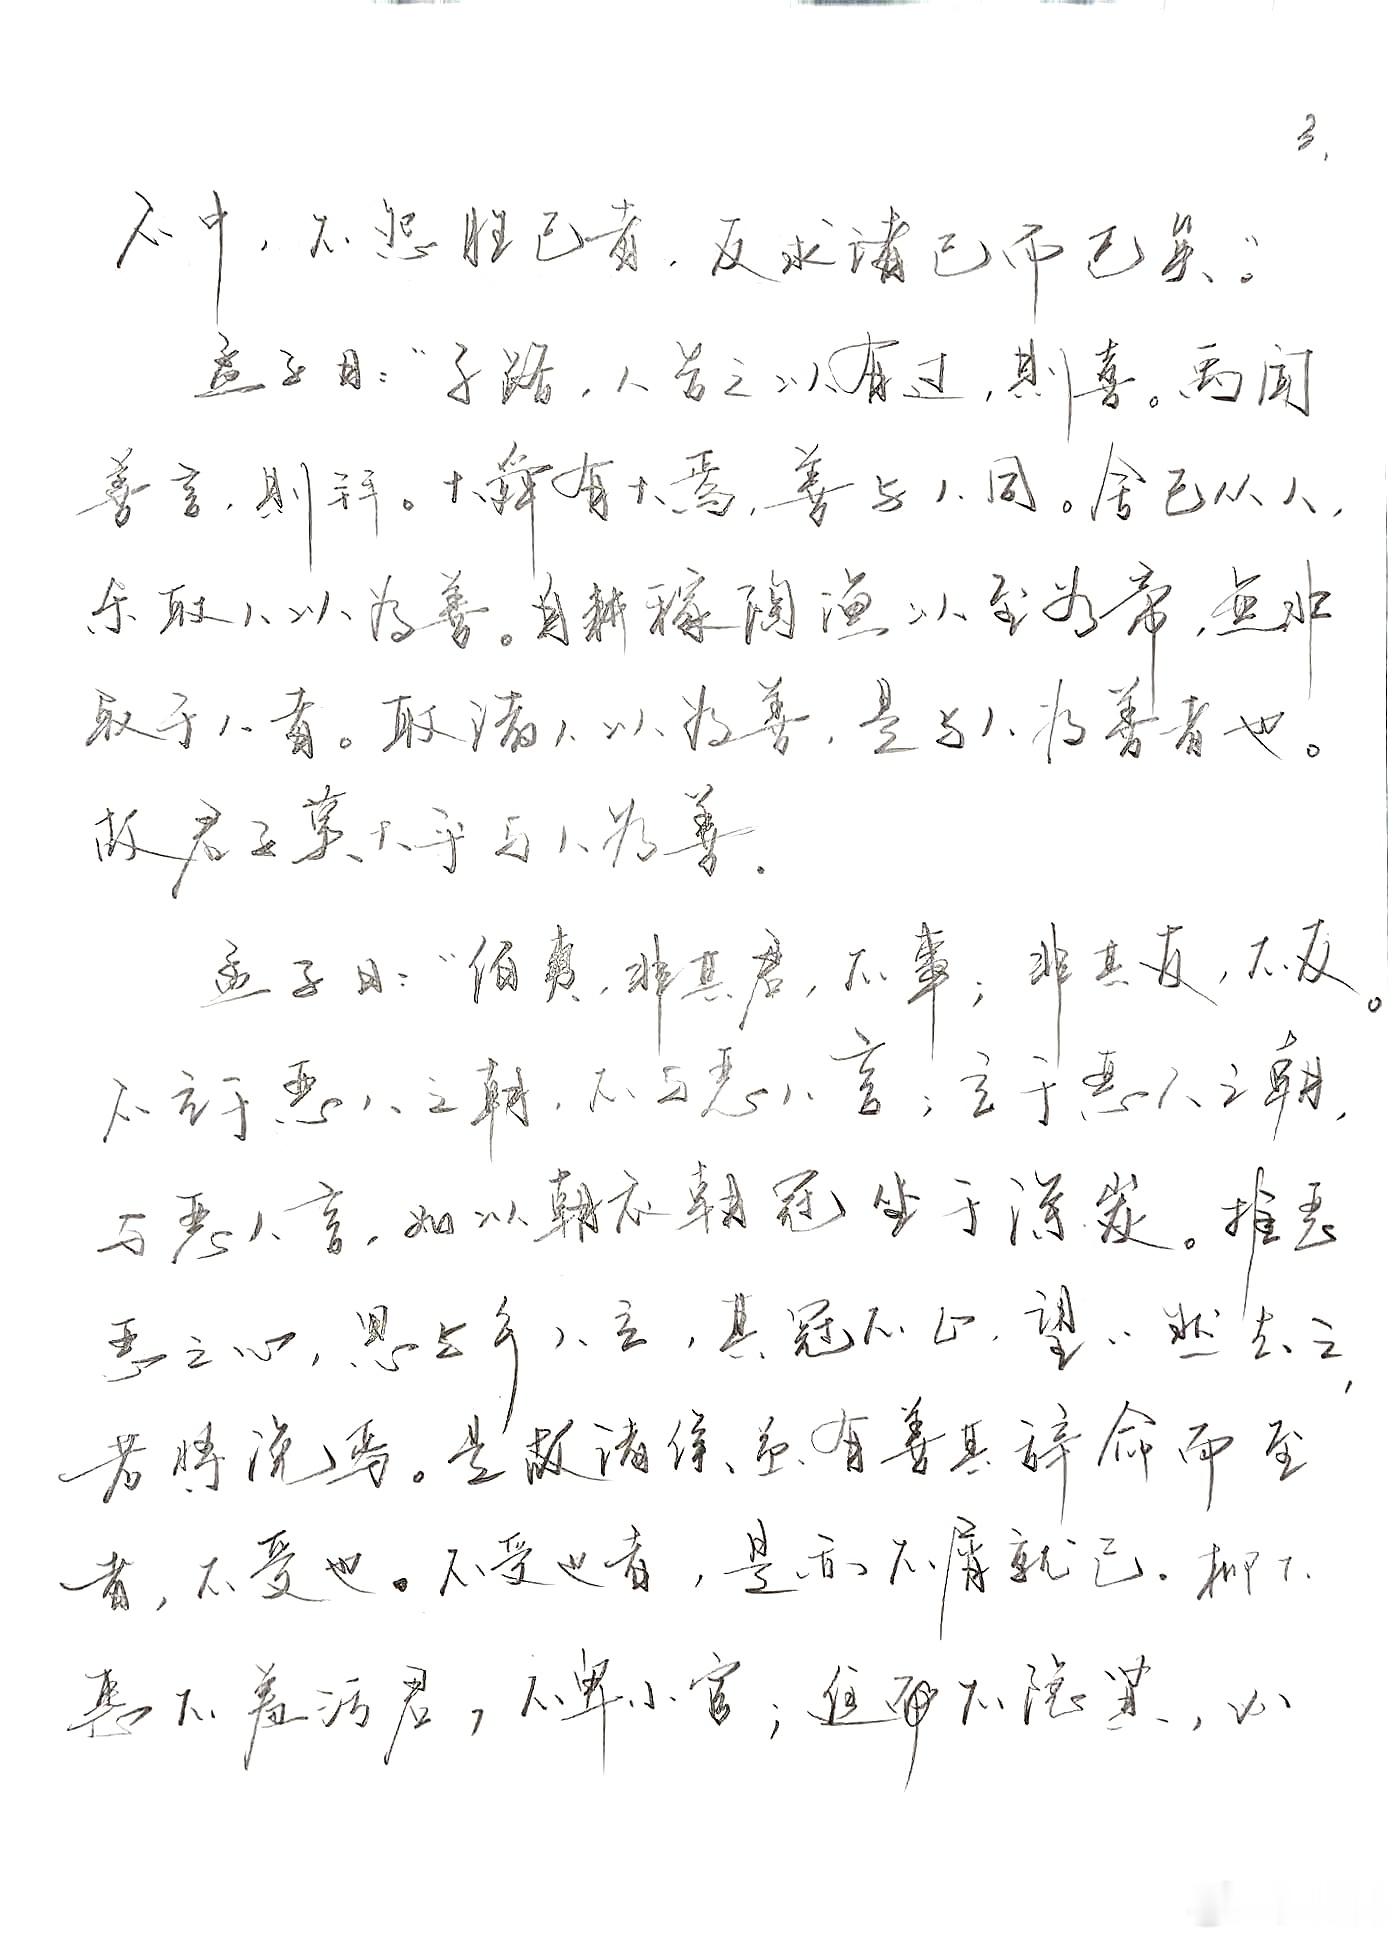 3.
不中，不怨胜己者，反求诸己而已矣。”
孟子曰：“子路，人告之以有过，则喜。禹闻
善言，则拜。大舜有大焉，善与人同。舍己从人，
乐取人以为善。自耕稼陶渔以至为帝，无非
取于人者。取诸人以为善，是与人为善者也。
故君子莫大乎与人为善.
孟子曰：“伯夷，非其君，不事；非其友，不友。
不立于恶人之朝，不与恶人言；立于恶人之朝，
与恶人言，如以朝衣朝冠坐于涂炭。推恶
恶之心，思与乡人立，其冠不正，望望然去之，
若将浼焉。是故诸侯虽有善其辞命而至
者，不受也。不受也者，是亦不屑就已。柳下
惠不羞污君，不卑小官；进而不隐贤，必